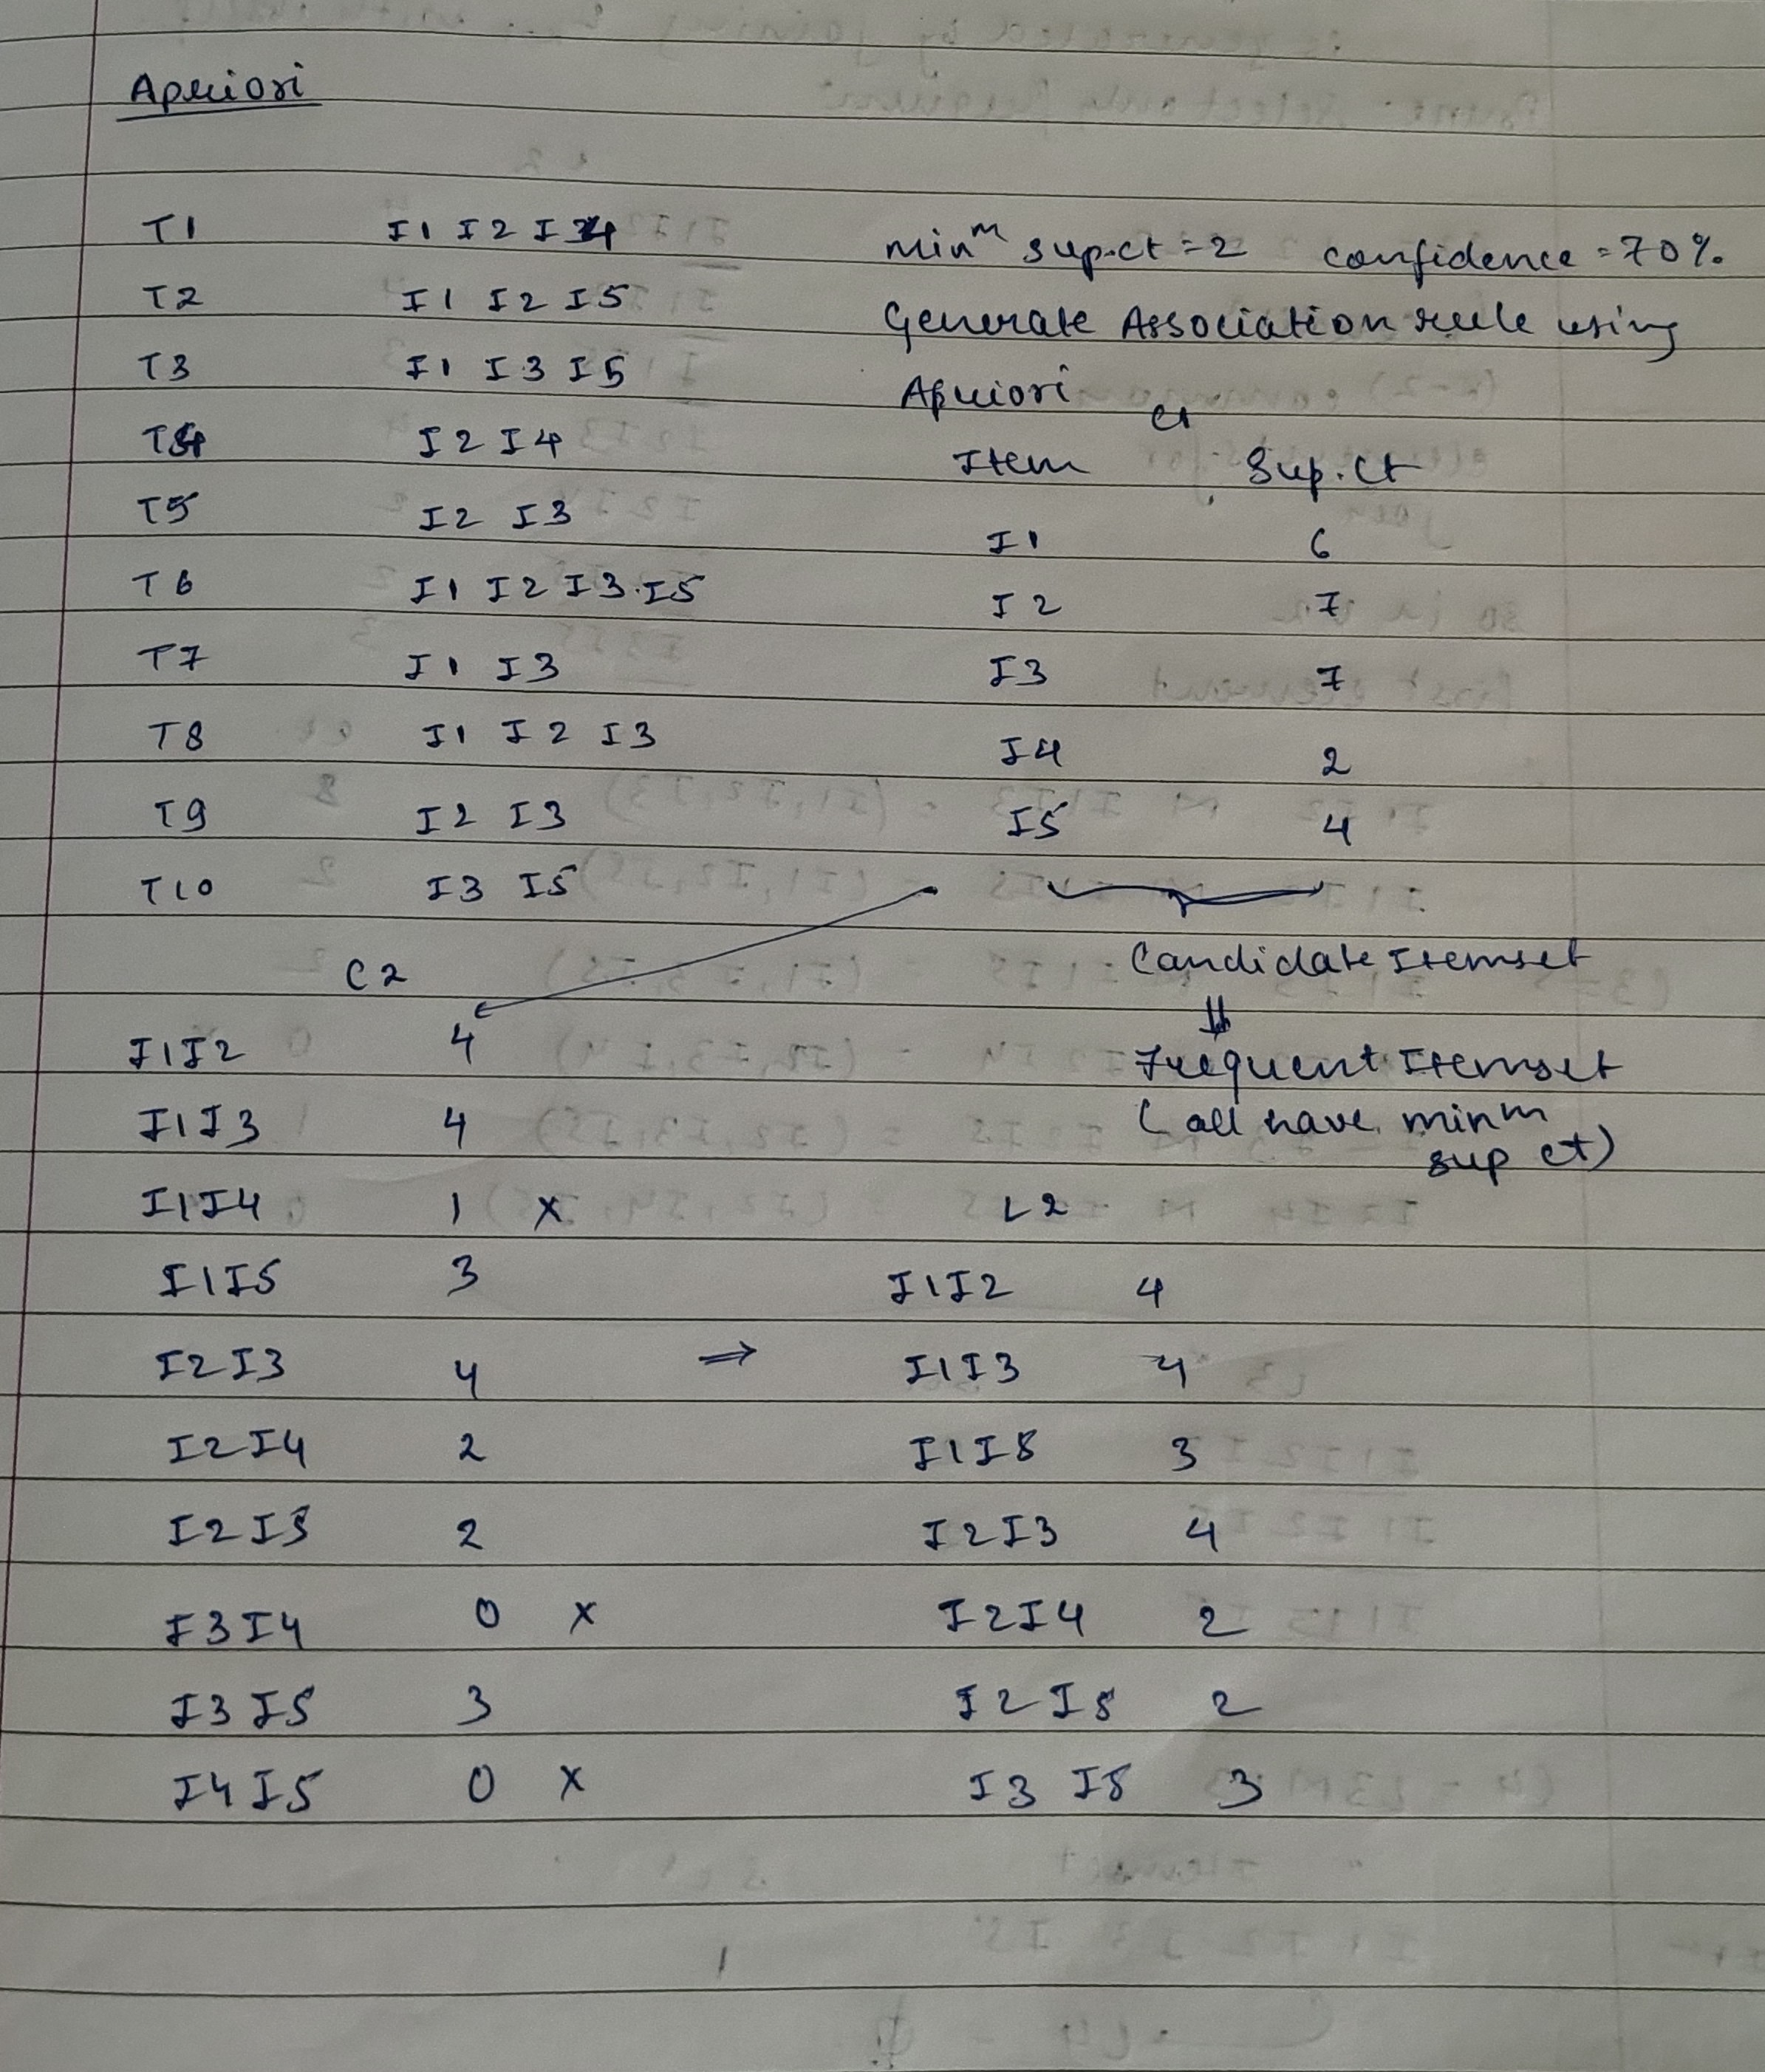 Apriori
T1 I1 I2 I4
T2 I1 I2 I5
T3 I1 I3 I5
T4 I2 I4
T5 I2 I3
T6 I1 I2 I3 I5
T7 I1 I3
T8 I1 I2 I3
T9 I2 I3
T10 I3 I5
minᵐ sup.ct = 2 confidence = 70%
Generate Association rule using
Apriori
C1
Item Sup.ct
I1 6
I2 7
I3 7
I4 2
I5 4
Candidate Itemset
⇓
Frequent Itemset
(all have minᵐ
sup ct)
C2
I1I2 4
I1I3 4
I1I4 1 x
I1I5 3
I2I3 4
I2I4 2
I2I5 2
I3I4 0 x
I3I5 3
I4I5 0 x
⇒
L2
I1I2 4
I1I3 4
I1I5 3
I2I3 4
I2I4 2
I2I5 2
I3 I5 3